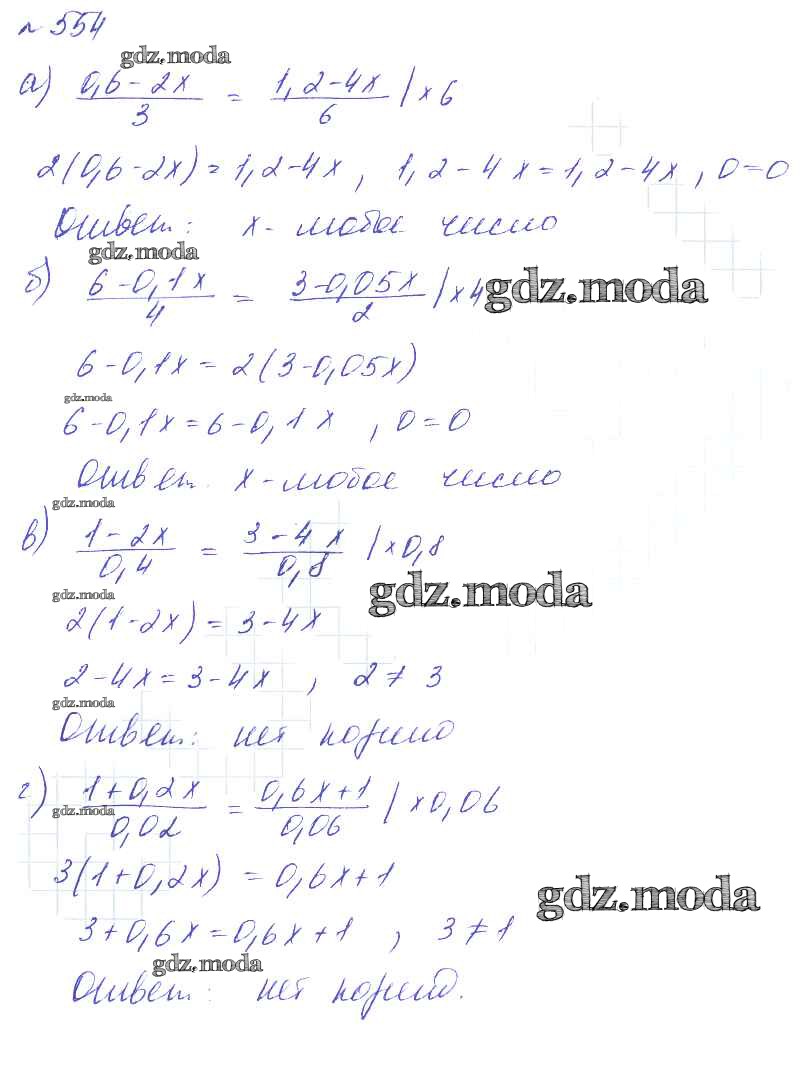 № 554
gdz.moda
а) (0,6-2x)/3 = (1,2-4x)/6 | x 6
2(0,6-2x) = 1,2-4x, 1,2-4x = 1,2-4x, 0=0
Ответ: x - любое число
gdz.moda
б) (6-0,1x)/4 = (3-0,05x)/2 | x 4
gdz.moda
6-0,1x = 2(3-0,05x)
gdz.moda
6-0,1x = 6-0,1x, 0=0
Ответ. x - любое число
gdz.moda
в) (1-2x)/0,4 = (3-4x)/0,8 | x 0,8
gdz.moda
gdz.moda
2(1-2x) = 3-4x
2-4x = 3-4x, 2≠3
gdz.moda
Ответ: нет корней
г) (1+0,2x)/0,02 = (0,6x+1)/0,06 | x 0,06
gdz.moda
3(1+0,2x) = 0,6x+1
gdz.moda
3+0,6x = 0,6x+1, 3≠1
gdz.moda
Ответ: нет корней.